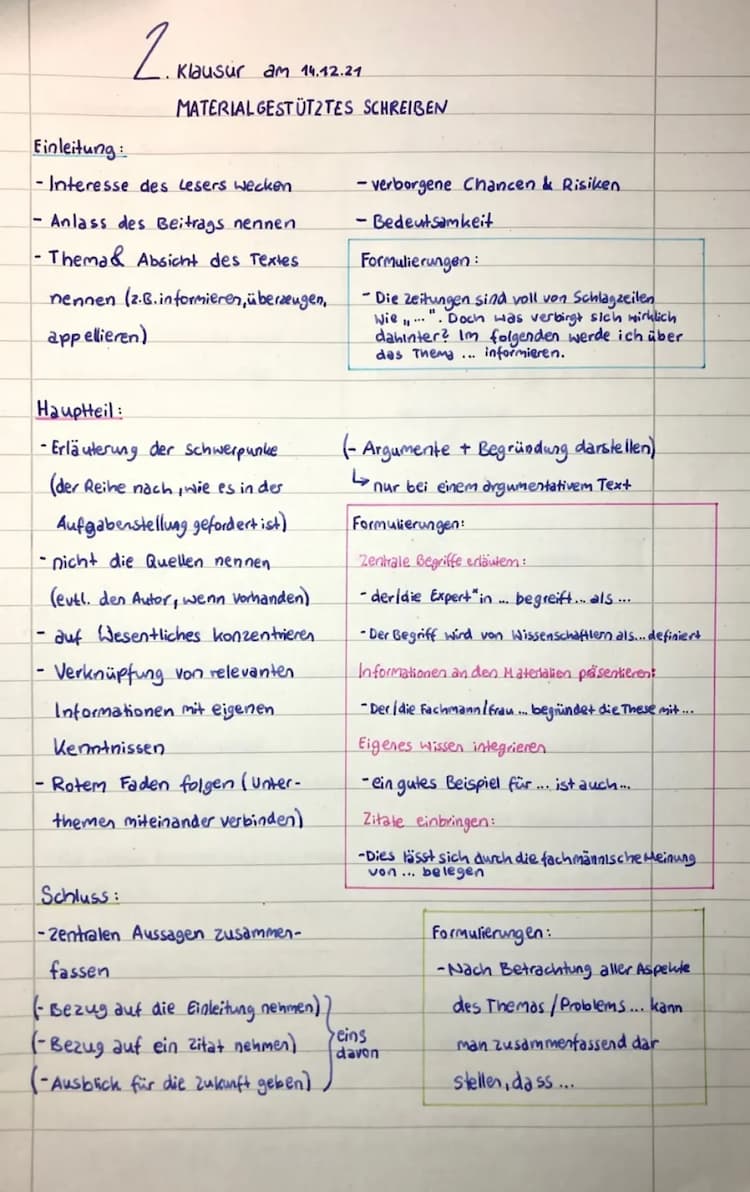 2. Klausur am 14.12.21
MATERIALGESTÜTZTES SCHREIBEN
Einleitung:
- Interesse des Lesers wecken
- Anlass des Beitrags nennen
- Thema & Absicht des Textes
nennen (z.B. informieren, überzeugen,
appellieren)
- verborgene Chancen & Risiken
- Bedeutsamkeit
Formulierungen:
- Die Zeitungen sind voll von Schlagzeilen
wie „...". Doch was verbirgt sich wirklich
dahinter? Im folgenden werde ich über
das Thema ... informieren.
Hauptteil:
- Erläuterung der Schwerpunke
(der Reihe nach, wie es in der
Aufgabenstellung gefordert ist)
- nicht die Quellen nennen
(evtl. den Autor, wenn vorhanden)
- auf Wesentliches konzentrieren
- Verknüpfung von relevanten
Informationen mit eigenen
Kenntnissen
- Rotem Faden folgen (Unter-
themen miteinander verbinden)
(- Argumente + Begründung darstellen)
↳ nur bei einem argumentativem Text
Formulierungen:
Zentrale Begriffe erläutern:
- der/die Expert*in ... begreift ... als ...
- Der Begriff wird von Wissenschaftlern als ... definiert
Informationen an den Materialien präsentieren:
- Der/die Fachmann/frau ... begründet die These mit ...
Eigenes Wissen integrieren
- ein gutes Beispiel für ... ist auch ...
Zitate einbringen:
- Dies lässt sich durch die fachmännische Meinung
von ... belegen
Schluss:
- zentralen Aussagen zusammen-
fassen
(- Bezug auf die Einleitung nehmen)
(- Bezug auf ein Zitat nehmen)
(- Ausblick für die Zukunft geben)
eins
davon
Formulierungen:
- Nach Betrachtung aller Aspekte
des Themas / Problems ... kann
man zusammenfassend dar
stellen, dass ...